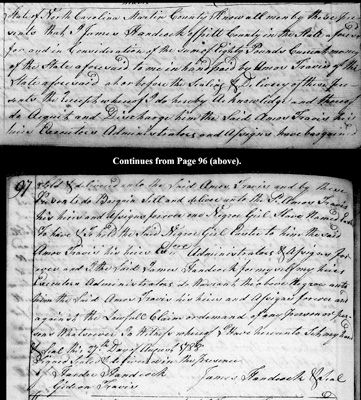 State of North Carolina Martin County Know all men by these pre
sents that I James Handcock of Pitt County in the State afore
for and in Consideration of the Sum of Eighty Pounds Current money
of the State aforesaid to me in hand paid by Amos Travis of the
State aforesaid at or before the Sealing & Delivery of these Pre
sents the Receipt whereof I do hereby Acknowledge and thereof
do Acquit and Discharge him the Said Amos Travis his
heirs Executors Administrators and Assigns have bargain
Continues from Page 96 (above).
97
sold & delivered unto the Said Amos Travis and by these
Presents do Bargain Sell and deliver unto the Sd. Amos Travis
his heirs and Assigns forever one Negroe Girl Slave Named
To have & to hold the said Negroe Girl to him the said
Amos Travis his heirs Exors Administrators & Assigns for
ever and I the Said James Handcock for my Self my heirs
Executors Administrators do Warrant the above Negroe unto
him the Said Amos Travis his heirs and Assigns forever and
against the Lawfull Claim or demand of any person or per
sons Whatsoever In Witness whereof I have hereunto Set my hand
& Seal this 27th Day of August
Signed Sealed & delivered in the presence
of Handcock
Gideon Travis
James Handcock Seal